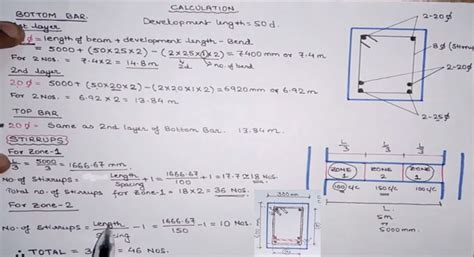 CALCULATION
BOTTOM BAR
Development length = 50d.
1st layer
25Ø = length of beam + development length - Bend
= 5000 + (50x25x2) - (2x25x1x2) = 7400 mm or 7.4m
2d
no. of bend
For 2 Nos. = 7.4x2 = 14.8m
2nd layer
20Ø = 5000 + (50x20x2) - (2x20x1x2) = 6920mm or 6.92m
For 2 Nos. = 6.92x2 = 13.84 m
TOP BAR
20Ø - Same as 2nd layer of Bottom Bar. 13.84 m.
STIRRUPS
For Zone-1
L/3 = 5000/3 = 1666.67 mm
No. of Stirrups = Length/Spacing + 1 = 1666.67/100 + 1 = 17.7 ≈ 18 Nos.
Total no. of stirrups for Zone-1 = 18x2 = 36 Nos.
For Zone-2
No. of Stirrups = Length/Spacing - 1 = 1666.67/150 - 1 = 10 Nos.
∴ TOTAL = 46 Nos.
2-20Ø
8Ø
2-20Ø
2-25Ø
L/3 L/3 L/3
ZONE 1 ZONE 2 ZONE 1
100 c/c 150 c/c 100 c/c
L
5m
5000mm
300 mm